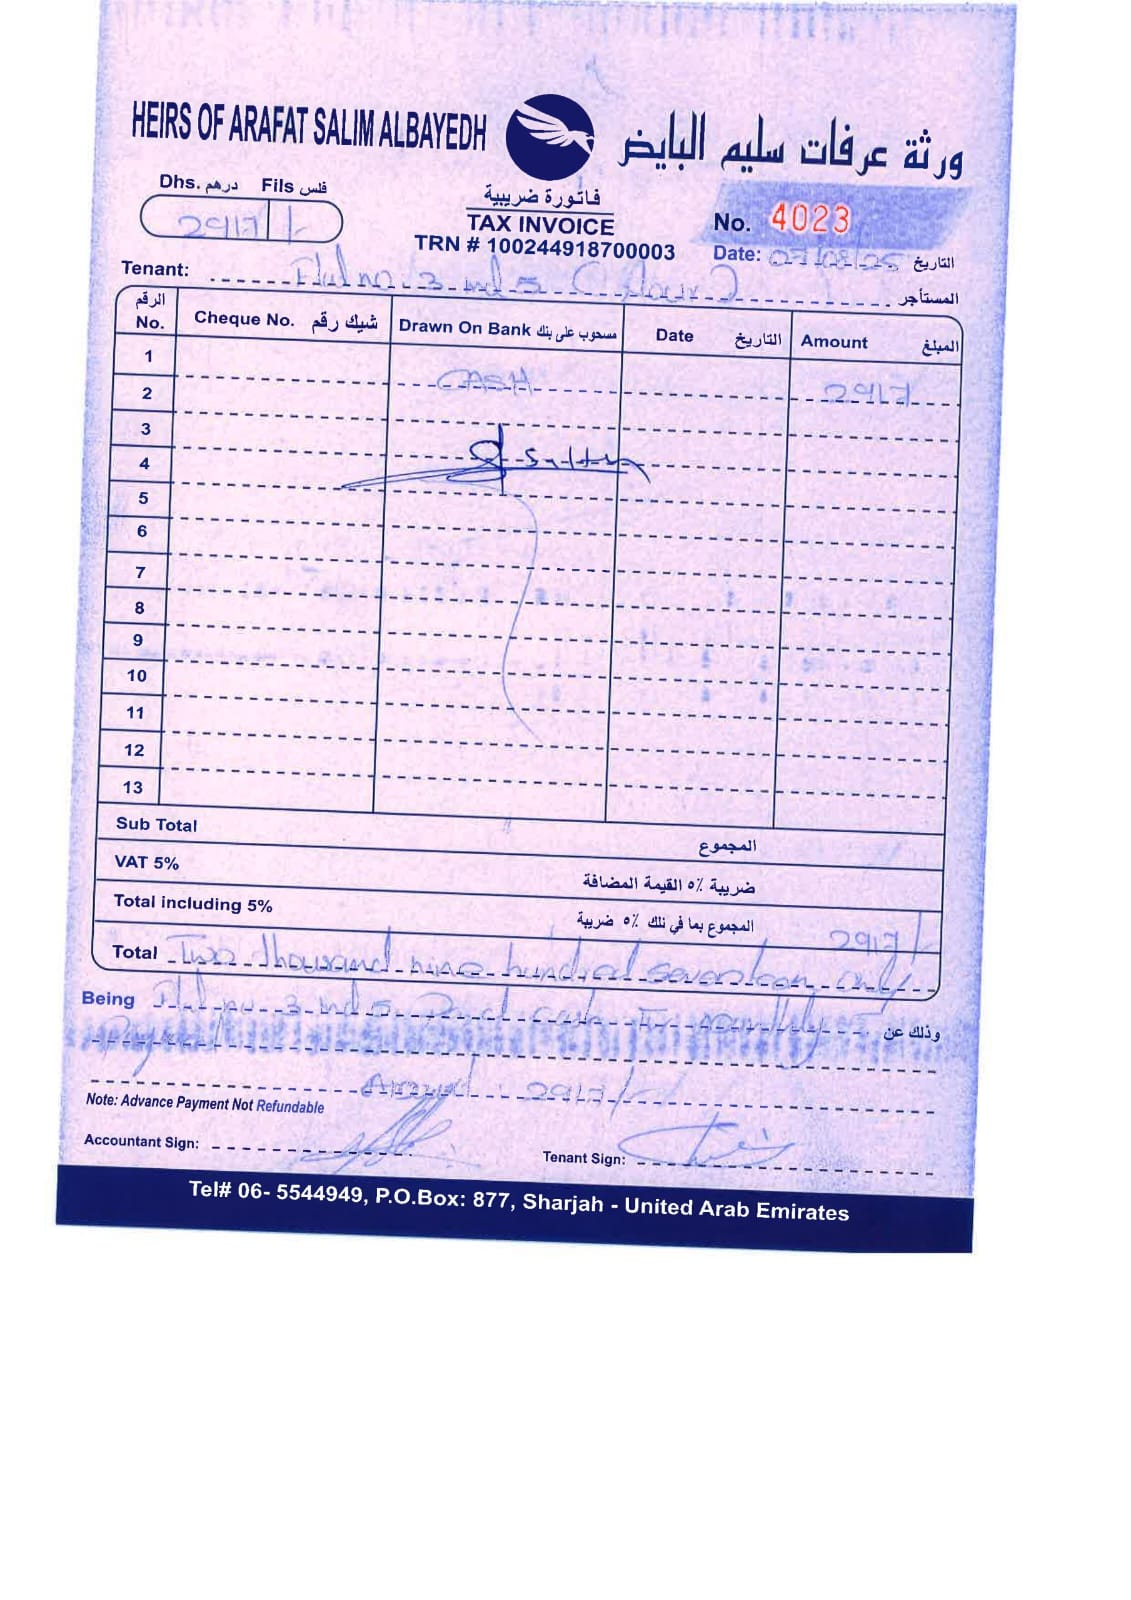 HEIRS OF ARAFAT SALIM ALBAYEDH
ورثة عرفات سليم البايض
Dhs. درهم Fils فلس
2917/-
فاتورة ضريبية
TAX INVOICE
TRN # 100244918700003
No. 4023
Date: 07/08/25 التاريخ
Tenant: no 3 5 المستأجر
الرقم No. Cheque No. شيك رقم Drawn On Bank مسحوب على بنك Date التاريخ Amount المبلغ
1
2 CASH 2917
3
4
5
6
7
8
9
10
11
12
13
Sub Total المجموع
VAT 5% ضريبة ٥٪ القيمة المضافة
Total including 5% المجموع بما في ذلك ٥٪ ضريبة 2917/-
Total Two thousand nine hundred seventeen only
Being no. 3 5 cash وذلك عن
2917/-
Note: Advance Payment Not Refundable
Accountant Sign:
Tenant Sign:
Tel# 06- 5544949, P.O.Box: 877, Sharjah - United Arab Emirates